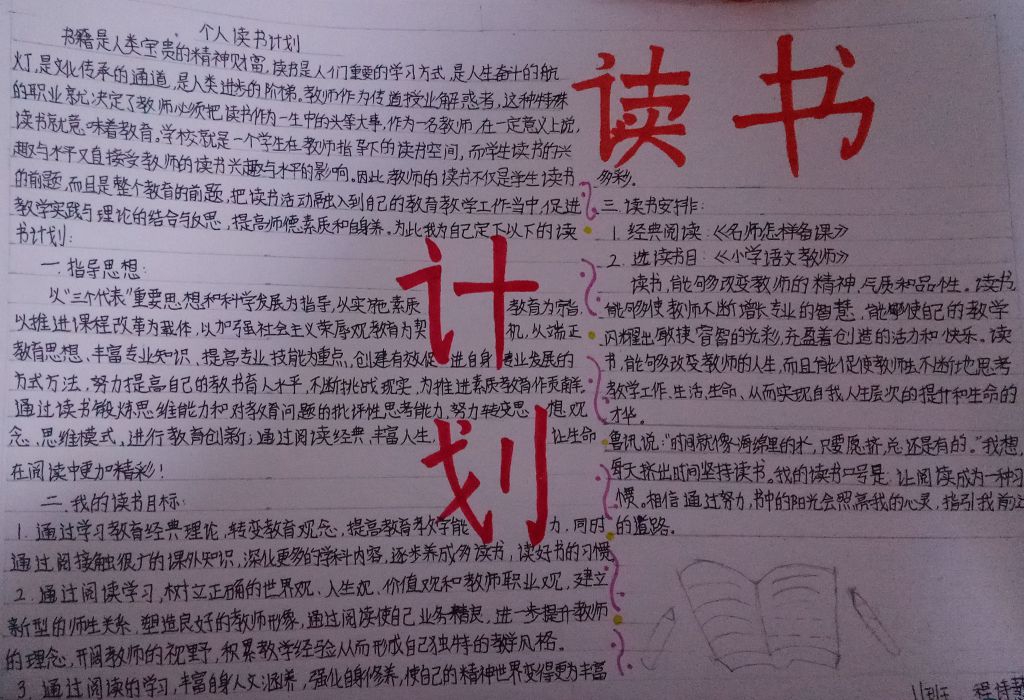 个人读书计划
书籍是人类宝贵的精神财富,读书是人们重要的学习方式,是人生奋斗的航
灯,是文化传承的通道,是人类进步的阶梯。教师作为传道授业解惑者,这种特殊
的职业就决定了教师必须把读书作为一生中的头等大事,作为一名教师,在一定意义上说,
读书就意味着教育。学校就是一个学生在教师指导下的读书空间,而学生读书的兴
趣与水平又直接受教师的读书兴趣与水平的影响。因此教师的读书不仅是学生读书
的前题,而且是整个教育的前题,把读书活动融入到自己的教育教学工作当中,促进
教学实践与理论的结合与反思,提高师德素质和自身养。为此我为自己定下以下的读
书计划:
一、指导思想:
以“三个代表”重要思想和科学发展为指导,以实施素质教育为宗旨,
以推进课程改革为载体,以加强社会主义荣辱观教育为契机,以端正
教育思想、丰富专业知识、提高专业技能为重点,创建有效促进自身专业发展的
方式方法,努力提高自己的教书育人水平,不断挑战现实,为推进素质教育作贡献。
通过读书锻炼思维能力和对教育问题的批评性思考能力,努力转变思想观
念、思维模式,进行教育创新;通过阅读经典,丰富人生,让生命
在阅读中更加精彩!
二、我的读书目标:
1.通过学习教育经典理论,转变教育观念,提高教育教学能力,同时
通过阅接触很广的课外知识,深化更多的学科内容,逐步养成多读书,读好书的习惯
2.通过阅读学习,树立正确的世界观、人生观、价值观和教师职业观,建立
新型的师生关系,塑造良好的教师形象,通过阅读使自己业务精良,进一步提升教师
的理念,开阔教师的视野,积累教学经验从而形成自己独特的教学风格。
3.通过阅读的学习,丰富自身人文涵养,强化自身修养,使自己的精神世界变得更为丰富
读书
计
划
多彩。
三.读书安排:
1.经典阅读:《名师怎样备课》
2.选读书目:《小学语文教师》
读书,能够改变教师的精神、气质和品性。读书,
能够使教师不断增长专业的智慧,能够使自己的教学
闪耀出敏捷睿智的光彩,充盈着创造的活力和快乐。读
书,能够改变教师的人生,而且能促使教师生不断地思考
教学工作、生活、生命、从而实现自我人生层次的提升和生命的
才华。
鲁讯说:“时间就像海绵里的水,只要愿挤,总还是有的。”我想,
每天挤出时间坚持读书。我的读书口号是:让阅读成为一种习
惯。相信通过努力,书中的阳光会照亮我的心灵,指引我前进
的道路。